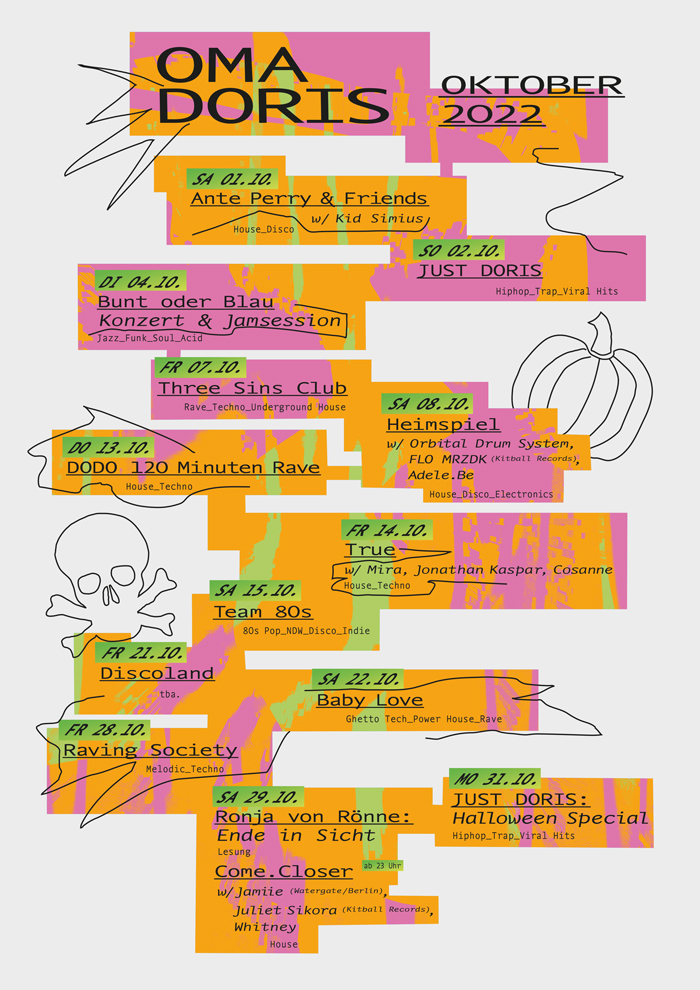 OMA
DORIS
OKTOBER
2022
SA 01.10.
Ante Perry & Friends
w/ Kid Simius
House_Disco
SO 02.10.
JUST DORIS
Hiphop_Trap_Viral Hits
DI 04.10.
Bunt oder Blau
Konzert & Jamsession
Jazz_Funk_Soul_Acid
FR 07.10.
Three Sins Club
Rave_Techno_Underground House
SA 08.10.
Heimspiel
w/ Orbital Drum System,
FLO MRZDK (Kitball Records),
Adele.Be
House_Disco_Electronics
DO 13.10.
DODO 120 Minuten Rave
House_Techno
FR 14.10.
True
w/ Mira, Jonathan Kaspar, Cosanne
House_Techno
SA 15.10.
Team 80s
80s Pop_NDW_Disco_Indie
FR 21.10.
Discoland
tba.
SA 22.10.
Baby Love
Ghetto Tech_Power House_Rave
FR 28.10.
Raving Society
Melodic_Techno
SA 29.10.
Ronja von Rönne:
Ende in Sicht
Lesung
Come.Closer
ab 23 Uhr
w/ Jamiie (Watergate/Berlin),
Juliet Sikora (Kitball Records),
Whitney
House
MO 31.10.
JUST DORIS:
Halloween Special
Hiphop_Trap_Viral Hits